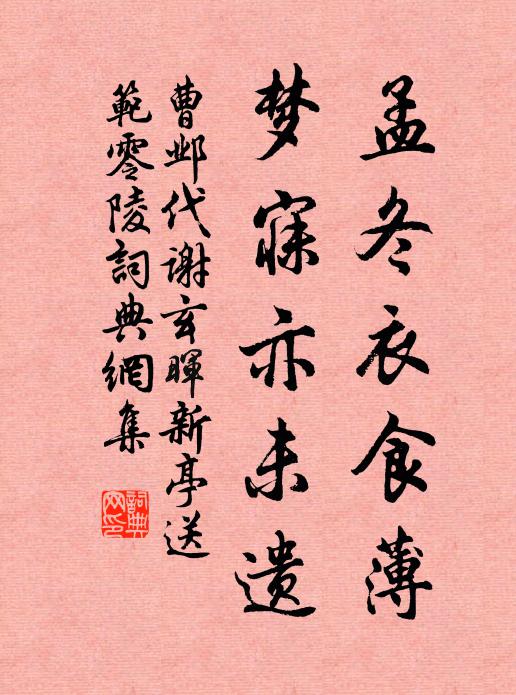 孟冬衣食薄
梦寐亦未遗
曹邺代谢玄暉新亭送
範零陵詞典網集
詞典网印